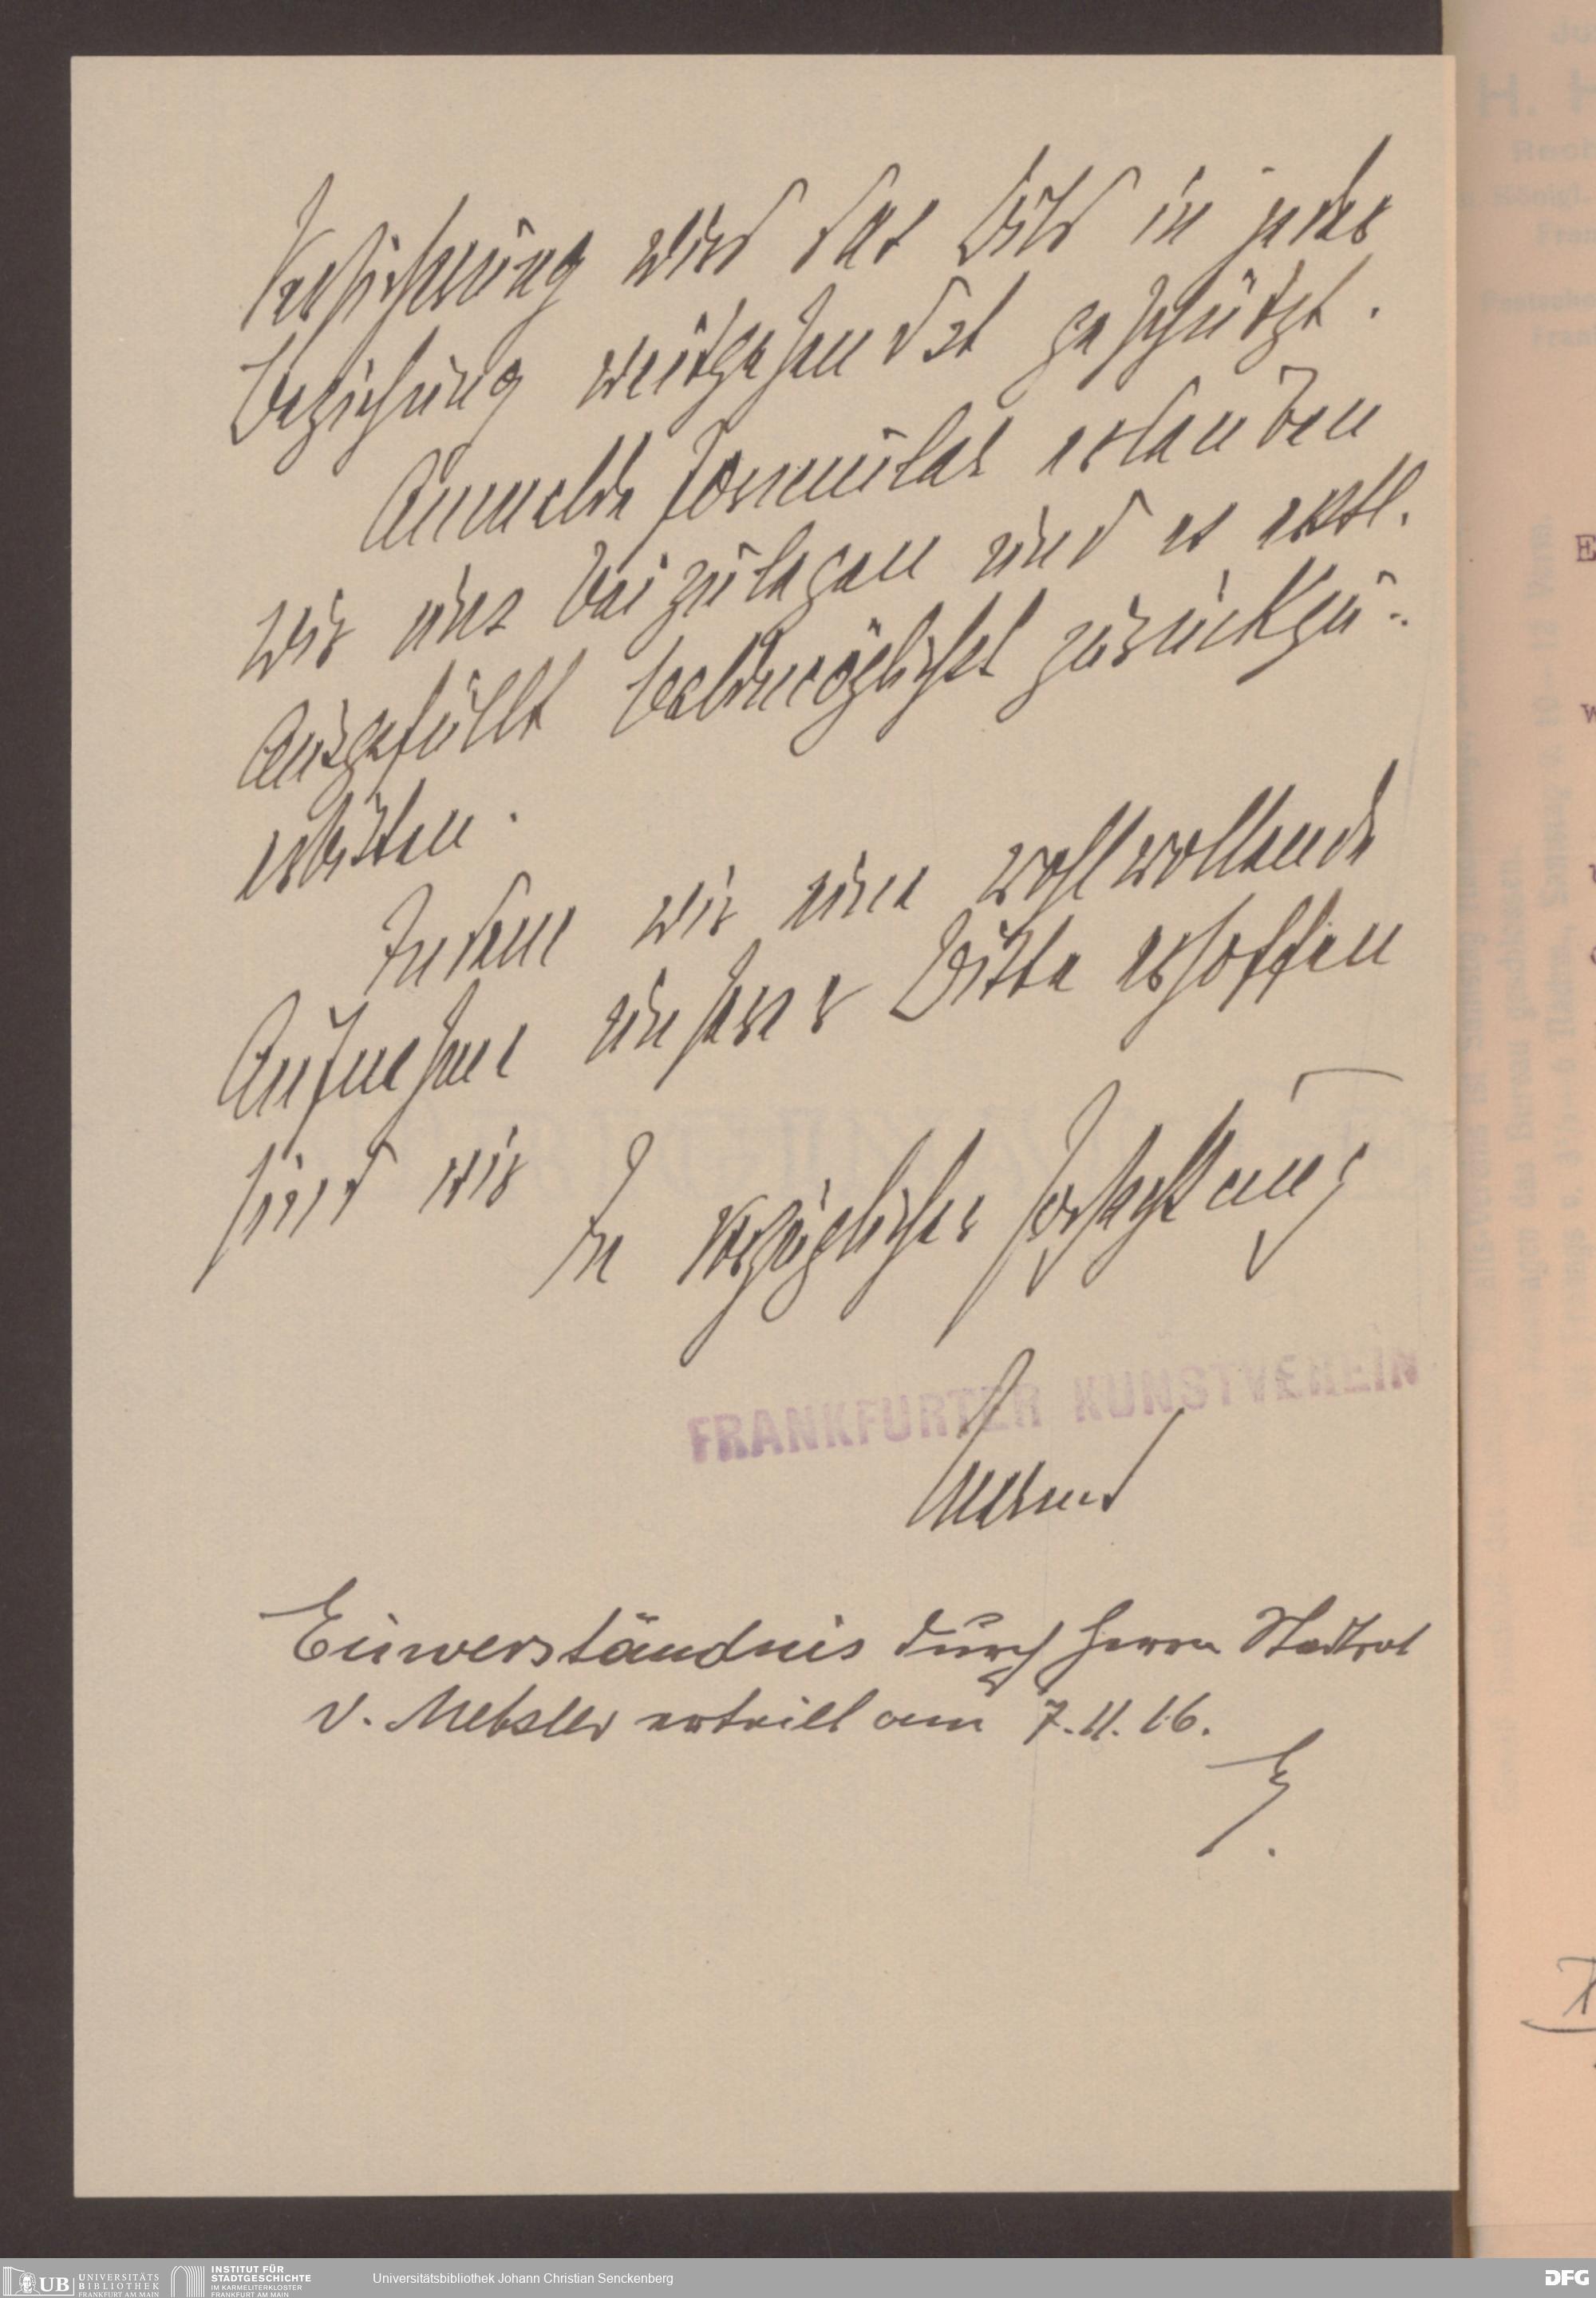 Versicherung wird das Bild in jeder
Beziehung weitgehendst geschützt.
Anmelde Formular erlauben
wir uns beizulegen und es
ausgefüllt baldmöglichst zurückzu-
erbitten.
Indem wir eine wohlwollende
Aufnehme unserer Bitte erhoffen
sind wir
In vorzüglicher Hochachtung
FRANKFURTER KUNSTVEREIN
Einverständnis durch Herrn Stadtrat
v. Metzler erteilt am 7.11.16.
UB UNIVERSITÄTS
BIBLIOTHEK
FRANKFURT AM MAIN
INSTITUT FÜR
STADTGESCHICHTE
IM KARMELITERKLOSTER
FRANKFURT AM MAIN
Universitätsbibliothek Johann Christian Senckenberg
DFG